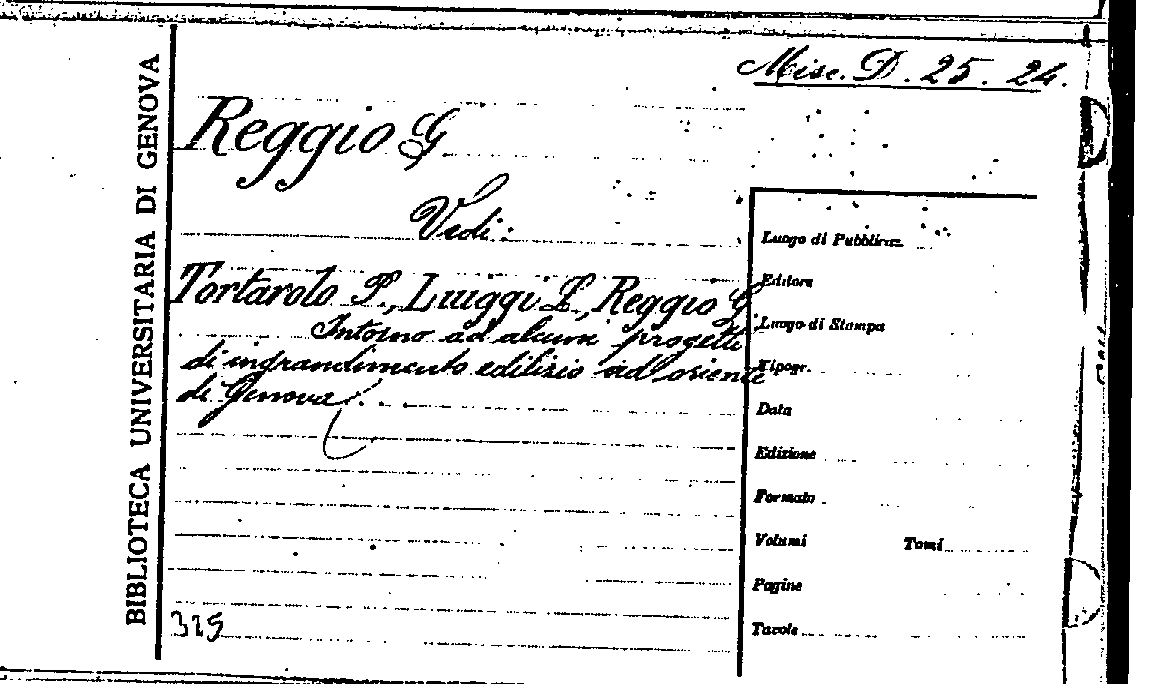 Misc. D. 25. 24.
BIBLIOTECA UNIVERSITARIA DI GENOVA
Reggio G
Vedi:
Tortarolo P., Luiggi L., Reggio G.
Intorno ad alcuni progetti
di ingrandimento edilizio ad oriente
di Genova
Luogo di Pubblicaz.
Editore
Luogo di Stampa
Tipogr.
Data
Edizione
Formato
Volumi Tomi
Pagine
Tavole
325